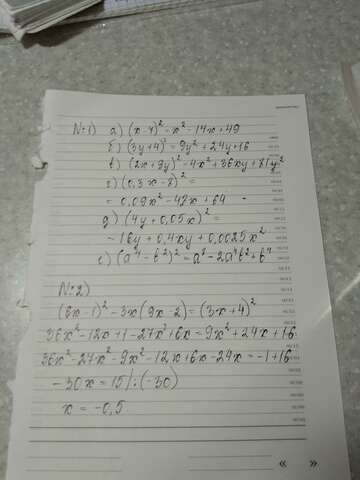 N:1) а) (x-7)² = x² - 14x + 49
б) (3y+4)² = 9y² + 24y + 16
в) (2x+9y)² = 4x² + 36xy + 81y²
г) (0,3x - 8)² =
= 0,09x² - 48x + 64
д) (4y + 0,05x)² =
= 16y + 0,4xy + 0,0025x²
е) (a⁴ - b²)² = a⁸ - 2a⁴b² + b⁴
N:2)
(6x-1)² - 3x(9x-2) = (3x+4)²
36x² - 12x + 1 - 27x² + 6x = 9x² + 24x + 16
36x² - 27x² - 9x² - 12x + 6x - 24x = -1 + 16
-30x = 15 | : (-30)
x = -0,5
« »